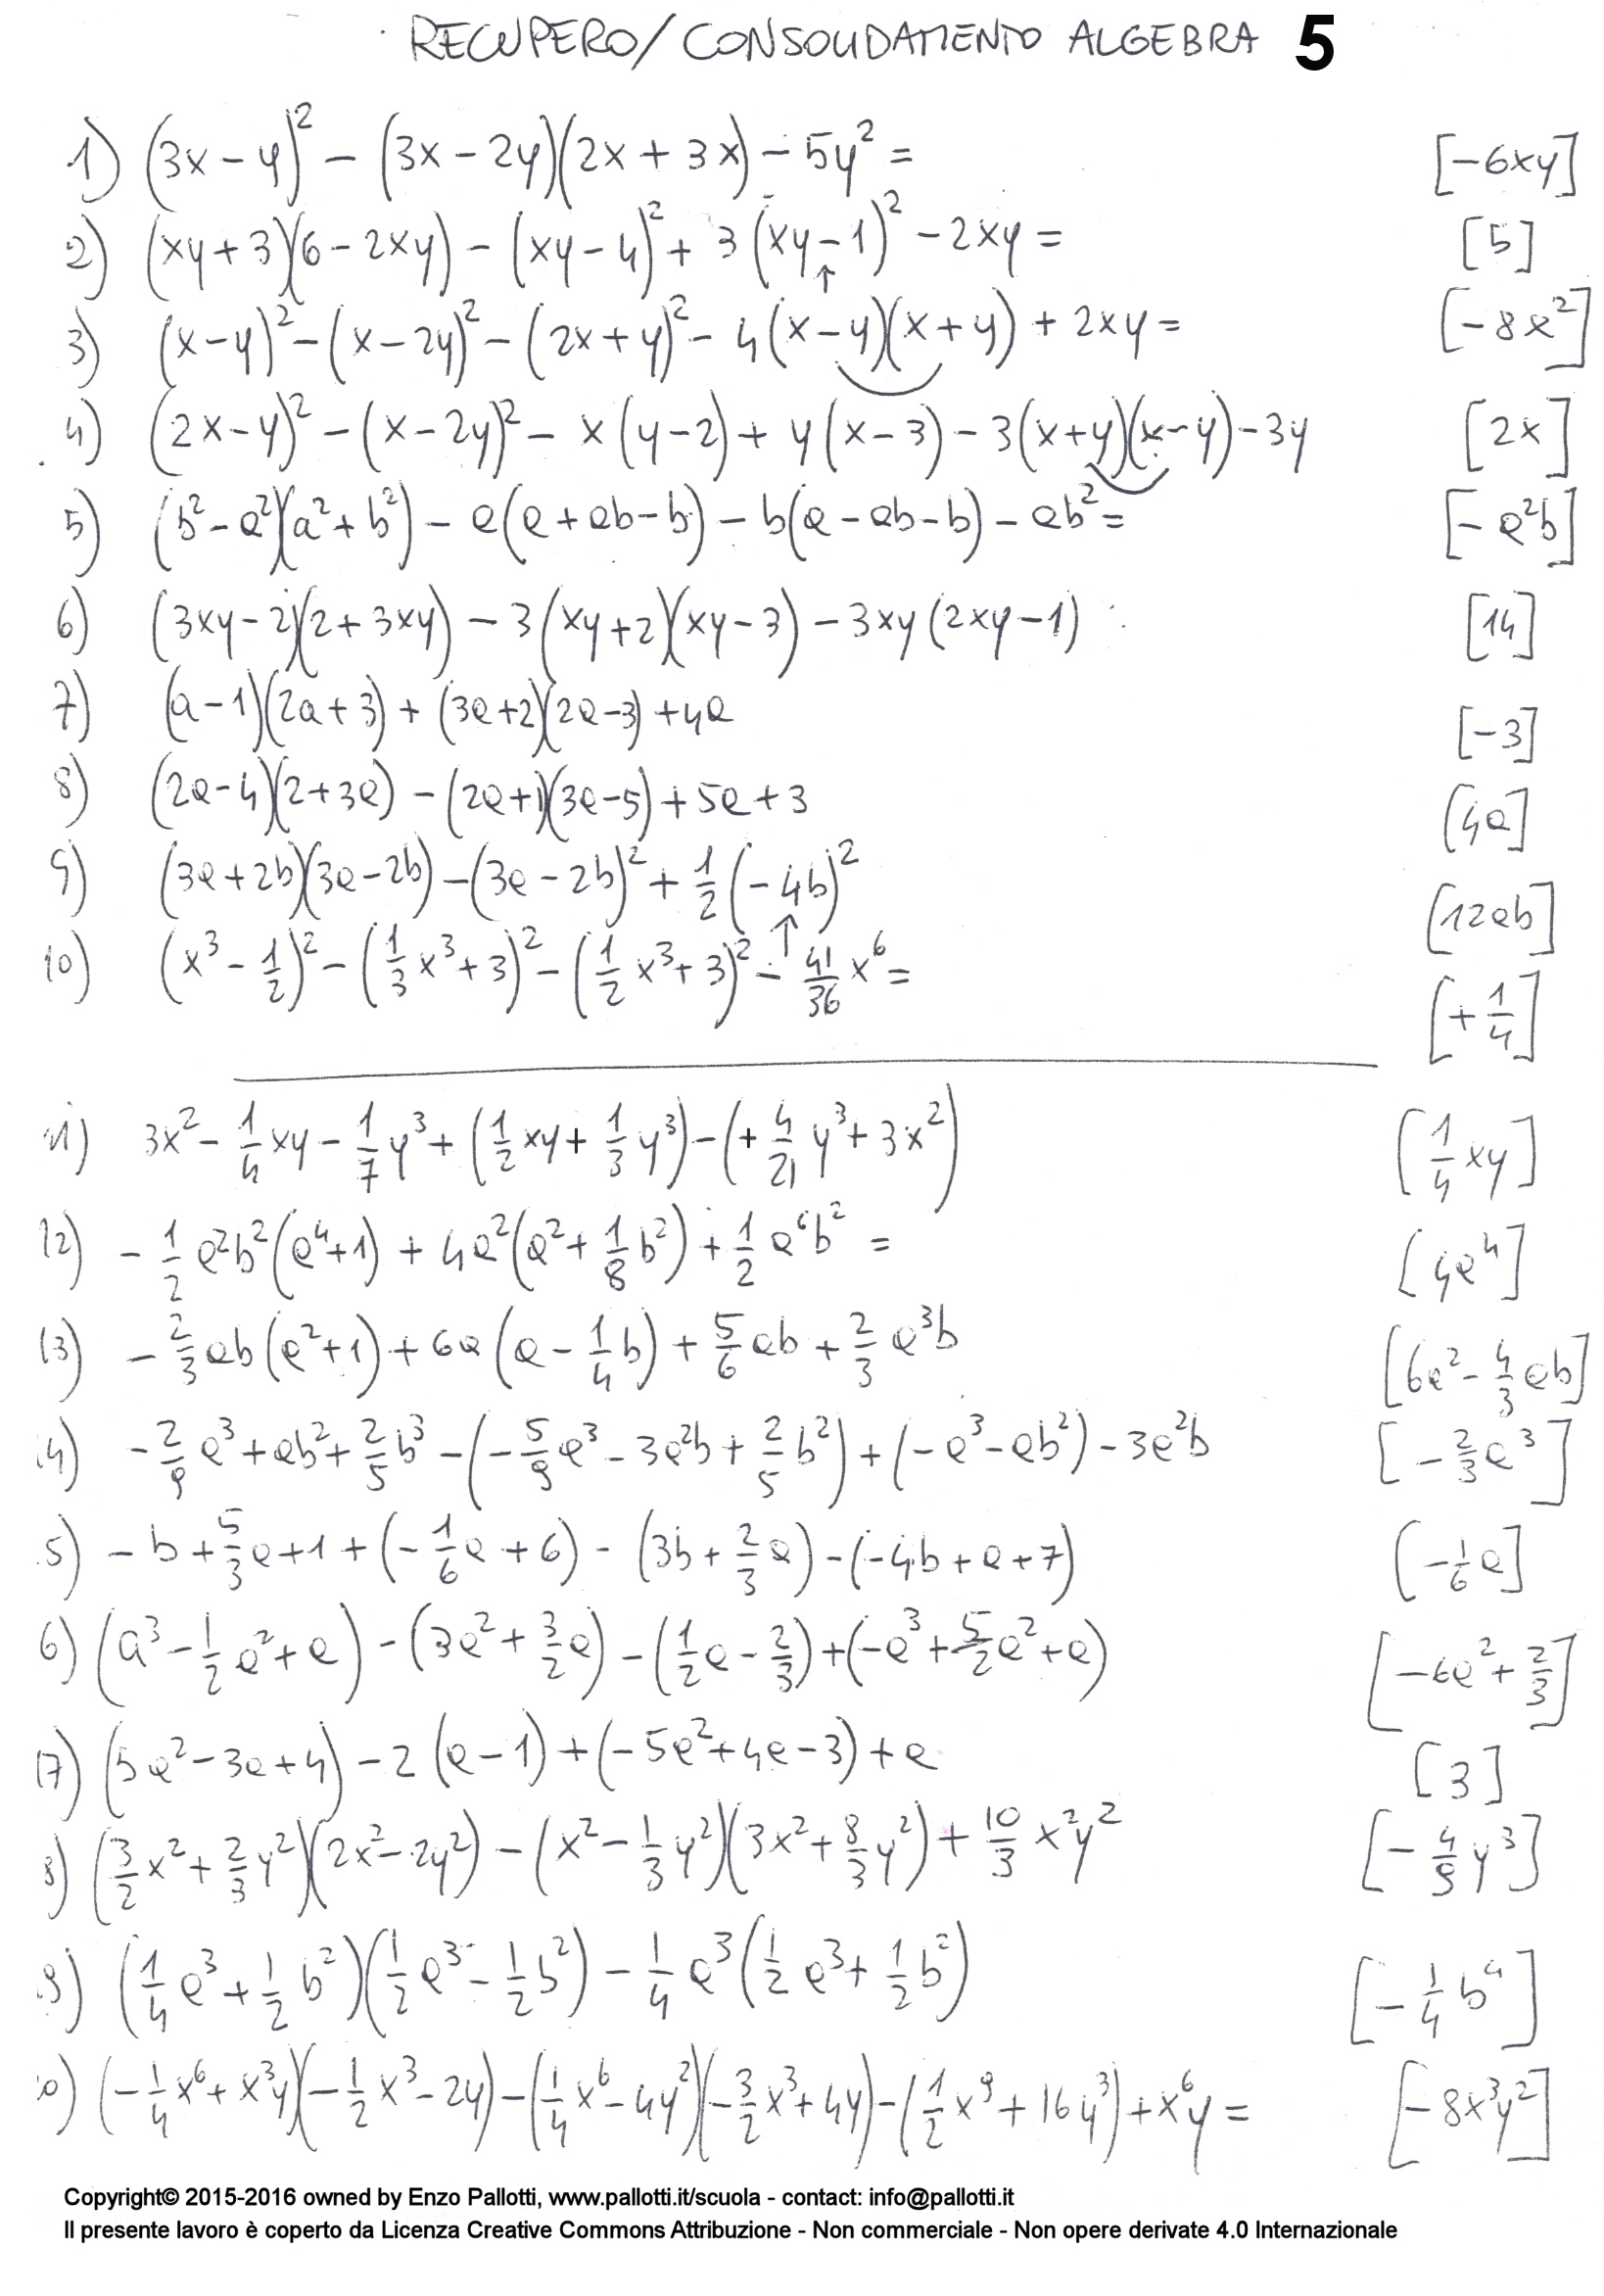 RECUPERO/CONSOLIDAMENTO ALGEBRA 5
1) (3x - y)² - (3x - 2y)(2x + 3x) - 5y² = [-6xy]
2) (xy + 3)(6 - 2xy) - (xy - 4)² + 3(xy - 1)² - 2xy = [5]
3) (x - y)² - (x - 2y)² - (2x + y)² - 4(x - y)(x + y) + 2xy = [-8x²]
4) (2x - y)² - (x - 2y)² - x(y - 2) + y(x - 3) - 3(x + y)(x - y) - 3y [2x]
5) (b² - a²)(a² + b²) - a(a + ab - b) - b(a - ab - b) - ab² = [-a²b]
6) (3xy - 2)(2 + 3xy) - 3(xy + 2)(xy - 3) - 3xy(2xy - 1) [14]
7) (a - 1)(2a + 3) + (3a + 2)(2a - 3) + 4a [-3]
8) (2a - 4)(2 + 3a) - (2a + 1)(3a - 5) + 5a + 3 [4a]
9) (3a + 2b)(3a - 2b) - (3a - 2b)² + 1/2(-4b)² [12ab]
10) (x³ - 1/2)² - (1/3x³ + 3)² - (1/2x³ + 3)² - 41/36x⁶ = [+1/4]
11) 3x² - 1/4xy - 1/7y³ + (1/2xy + 1/3y³) - (+4/21y³ + 3x²) [1/4xy]
12) -1/2a²b²(a⁴ + 1) + 4a²(a² + 1/8b²) + 1/2a⁶b² = [4a⁴]
13) -2/3ab(a² + 1) + 6a(a - 1/4b) + 5/6ab + 2/3a³b [6a² - 4/3ab]
14) -2/9a³ + ab² + 2/5b³ - (-5/9a³ - 3a²b + 2/5b²) + (-a³ - ab²) - 3a²b [-2/3a³]
5) -b + 5/3a + 1 + (-1/6a + 6) - (3b + 2/3a) - (-4b + a + 7) [-1/6a]
6) (a³ - 1/2a² + a) - (3a² + 3/2a) - (1/2a - 2/3) + (-a³ + 5/2a² + a) [-6a² + 2/3]
17) (5a² - 3a + 4) - 2(a - 1) + (-5a² + 4a - 3) + a [3]
8) (3/2x² + 2/3y²)(2x² - 2y²) - (x² - 1/3y²)(3x² + 8/3y²) + 10/3x²y² [-4/9y³]
9) (1/4a³ + 1/2b²)(1/2a³ - 1/2b²) - 1/4a³(1/2a³ + 1/2b²) [-1/4b⁴]
0) (-1/4x⁶ + x³y)(-1/2x³ - 2y) - (1/4x⁶ - 4y²)(-3/2x³ + 4y) - (1/2x⁹ + 16y³) + x⁶y = [-8x³y²]
Copyright© 2015-2016 owned by Enzo Pallotti, www.pallotti.it/scuola - contact: info@pallotti.it
Il presente lavoro è coperto da Licenza Creative Commons Attribuzione - Non commerciale - Non opere derivate 4.0 Internazionale